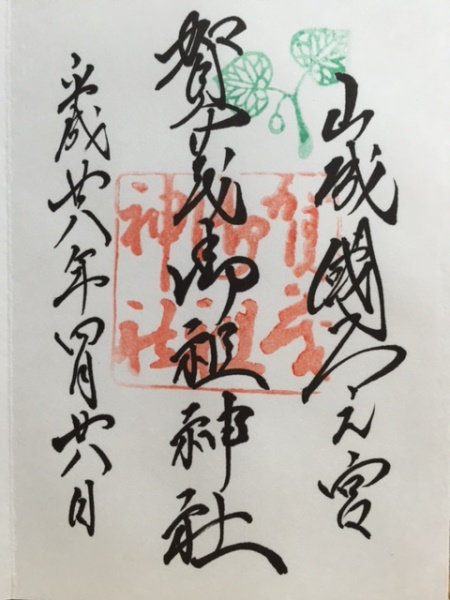 山城國一之宮
賀茂御祖神社
平成廿八年四月廿八日
賀茂
御祖
神社